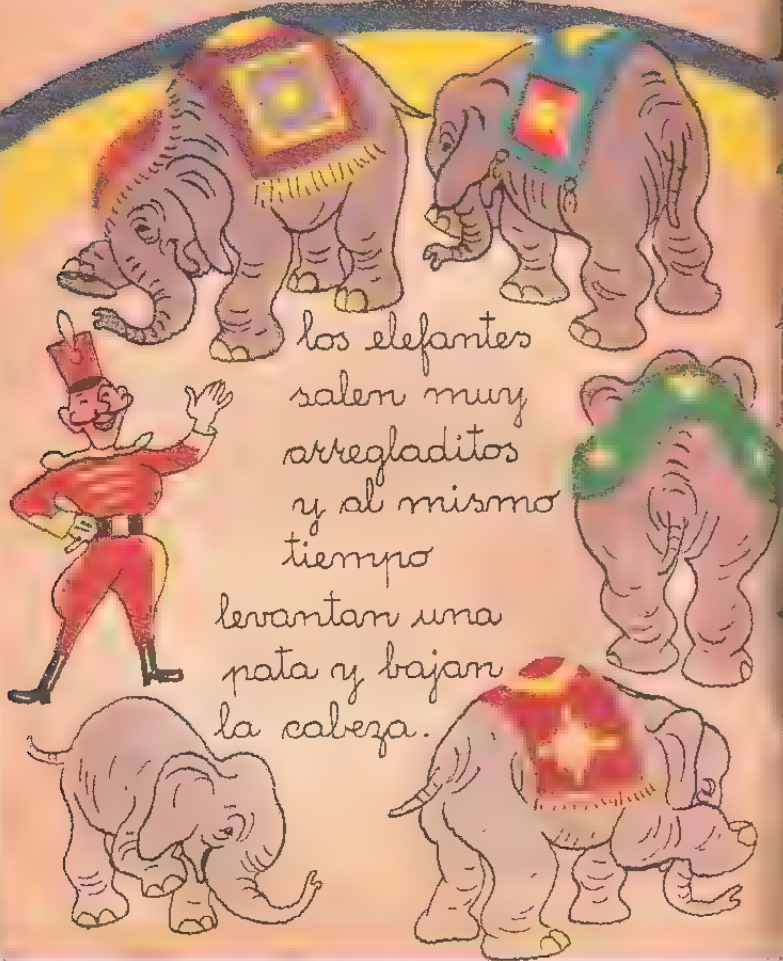 los elefantes
salen muy
arregladitos
y al mismo
tiempo
levantan una
pata y bajan
la cabeza.